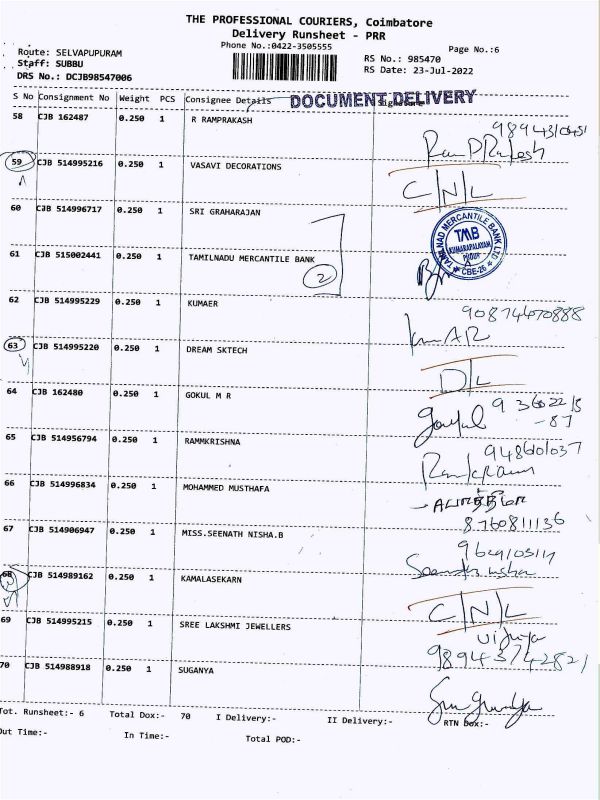 THE PROFESSIONAL COURIERS, Coimbatore
Delivery Runsheet - PRR
Phone No.:0422-3505555
Page No.:6
Route: SELVAPUPURAM
Staff: SUBBU
DRS No.: DCJB98547006
RS No.: 985470
RS Date: 23-Jul-2022
S No Consignment No Weight PCS Consignee Details Signature
DOCUMENT DELIVERY
58 CJB 162487 0.250 1 R RAMPRAKASH
59 CJB 514995216 0.250 1 VASAVI DECORATIONS C/N/L
60 CJB 514996717 0.250 1 SRI GRAHARAJAN
61 CJB 515002441 0.250 1 TAMILNADU MERCANTILE BANK
2
TAMILNAD MERCANTILE BANK LTD
TMB
CBE-26
62 CJB 514995229 0.250 1 KUMAER 90874070888
63 CJB 514995220 0.250 1 DREAM SKTECH D/L
64 CJB 162480 0.250 1 GOKUL M R
65 CJB 514956794 0.250 1 RAMMKRISHNA
66 CJB 514996834 0.250 1 MOHAMMED MUSTHAFA
8760811136
67 CJB 514906947 0.250 1 MISS.SEENATH NISHA.B
68 CJB 514989162 0.250 1 KAMALASEKARN C/N/L
69 CJB 514995215 0.250 1 SREE LAKSHMI JEWELLERS
70 CJB 514988918 0.250 1 SUGANYA
Tot. Runsheet:- 6 Total Dox:- 70 I Delivery:- II Delivery:- RTN Dox:-
Out Time:- In Time:- Total POD:-